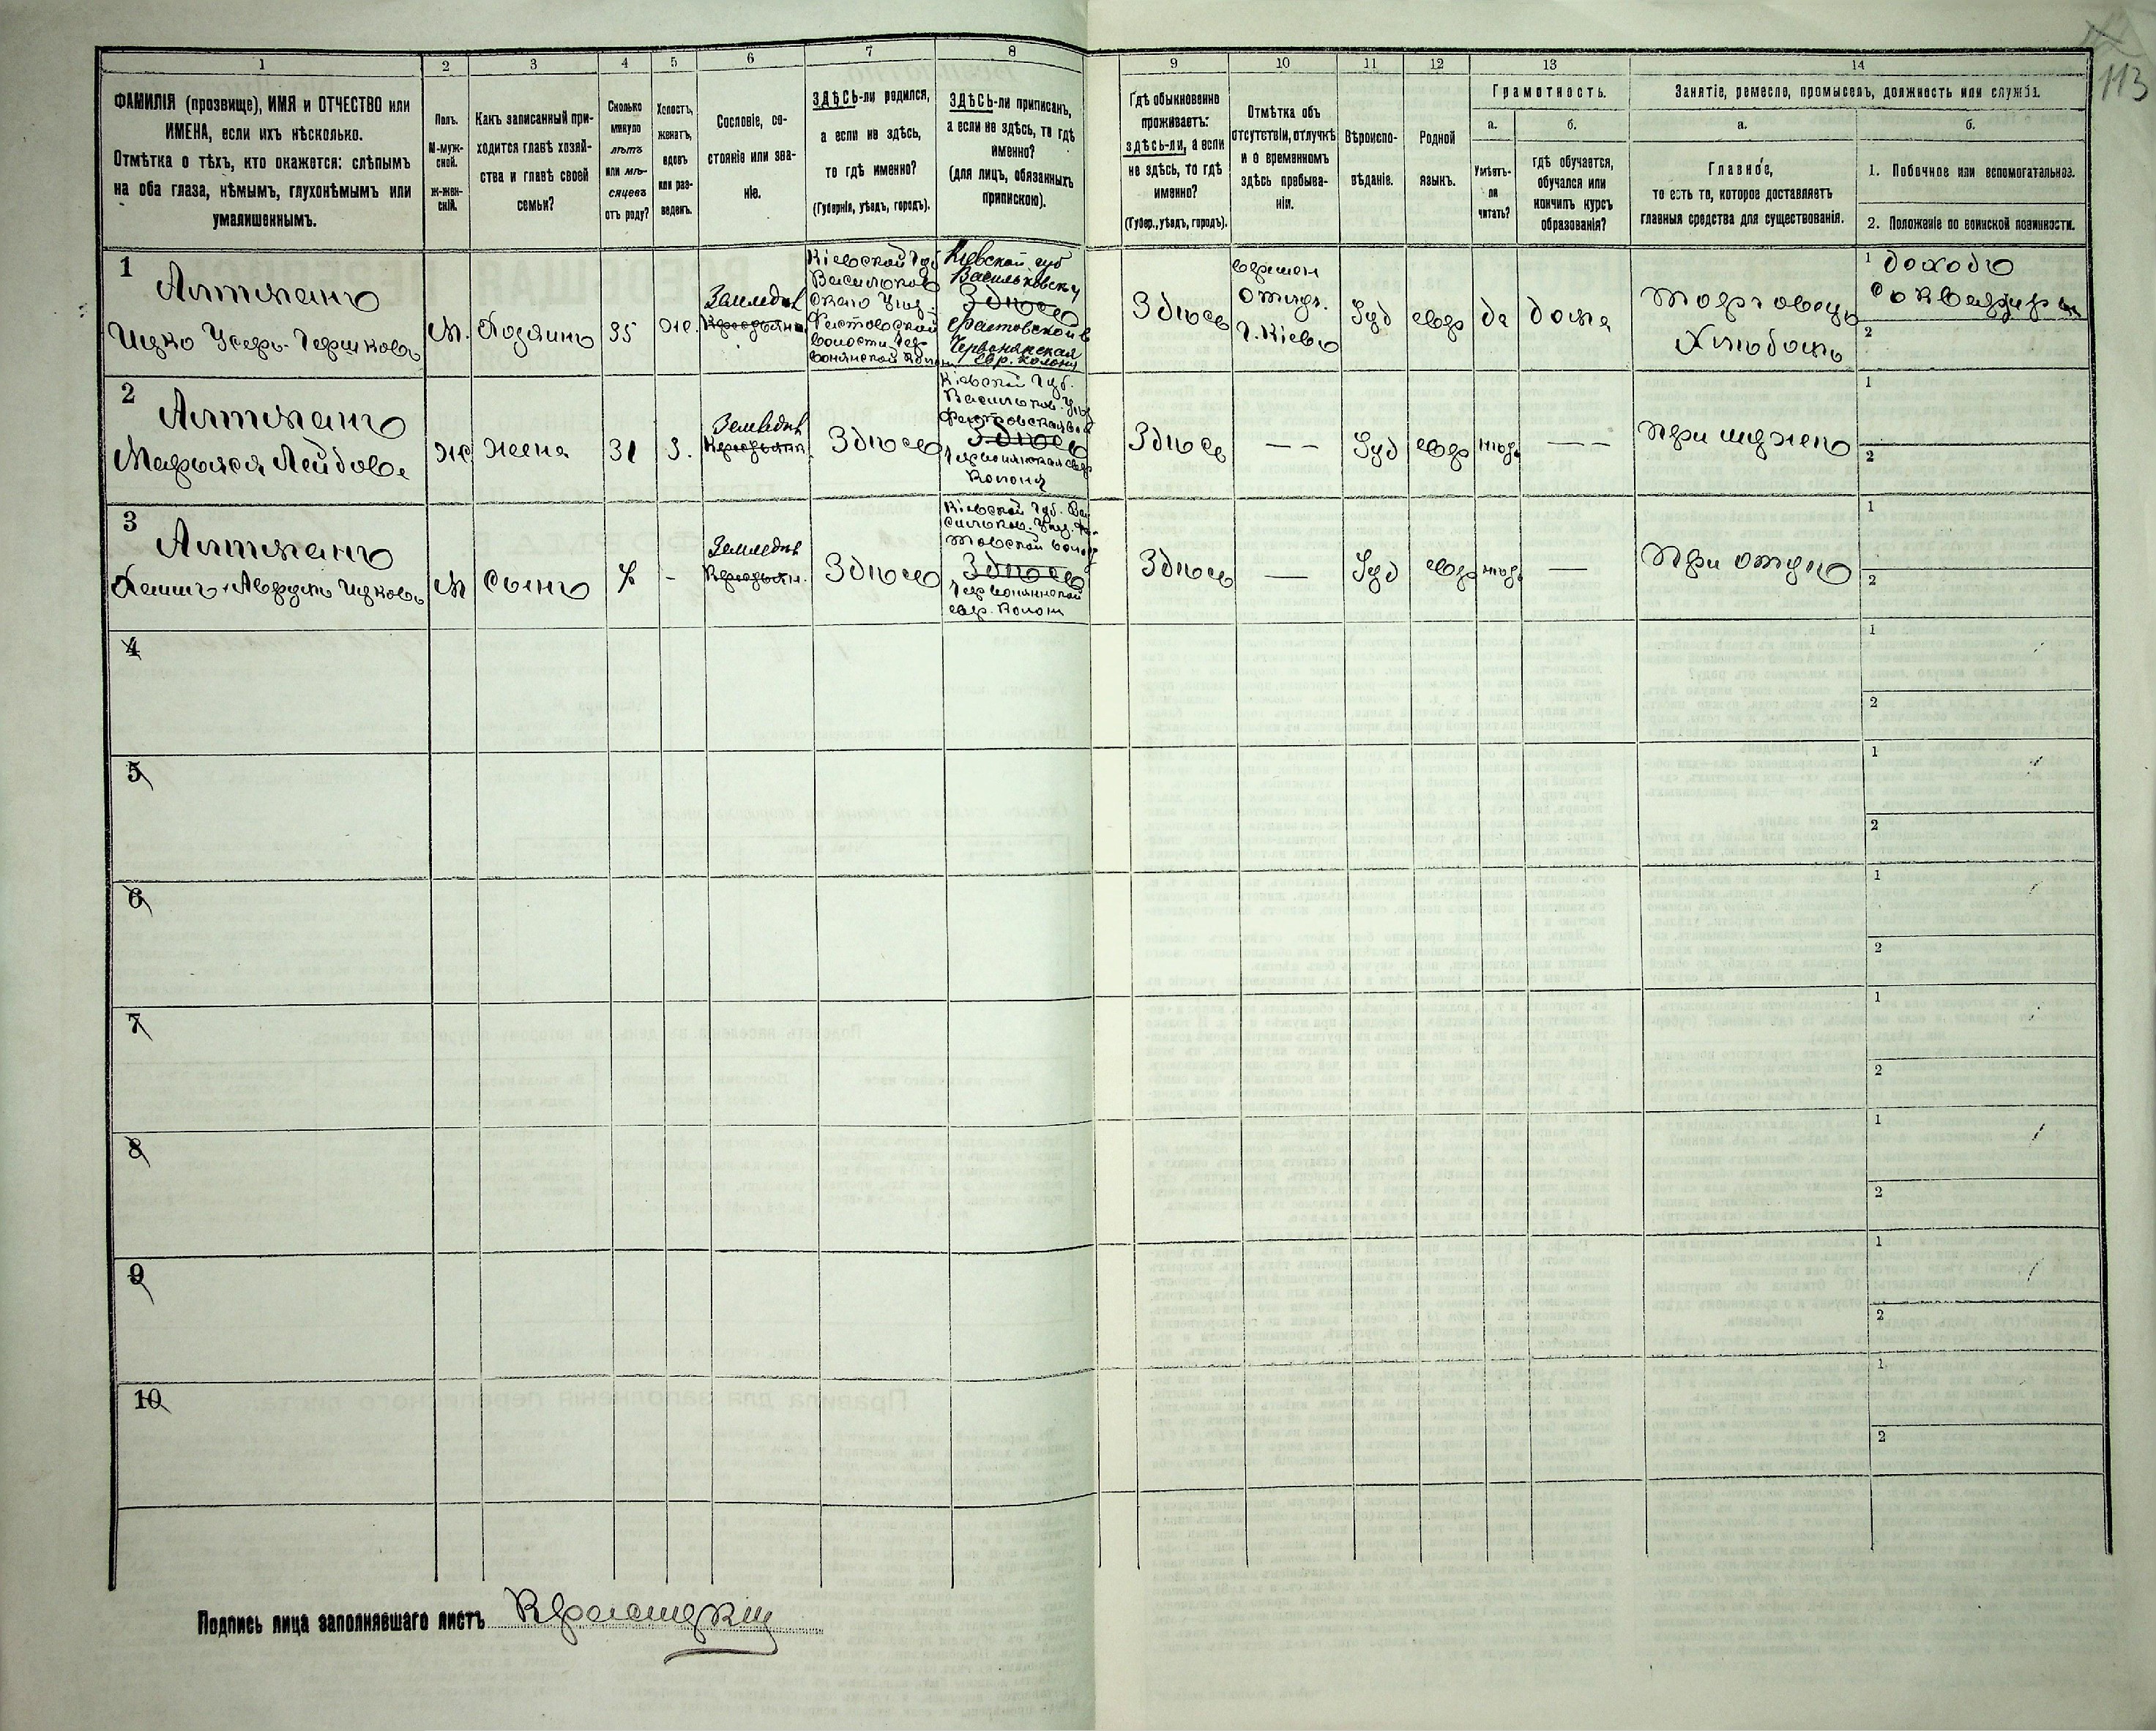 113
1 2 3 4 5 6 7 8 9 10 11 12 13 14
ФАМИЛІЯ (прозвище), ИМЯ и ОТЧЕСТВО или
ИМЕНА, если ихъ нѣсколько.
Отмѣтка о тѣхъ, кто окажется: слѣпымъ
на оба глаза, нѣмымъ, глухонѣмымъ или
умалишеннымъ.
Полъ.
М-муж-
ской.
ж-жен-
скій.
Какъ записанный при-
ходится главѣ хозяй-
ства и главѣ своей
семьи?
Сколько
минуло
лѣтъ
или мѣ-
сяцевъ
отъ роду?
Холостъ,
женатъ,
вдовъ
или раз-
веденъ.
Сословіе, со-
стояніе или зва-
ніе.
ЗДѢСЬ-ли родился,
а если не здѣсь,
то гдѣ именно?
(Губернія, уѣздъ, городъ).
ЗДѢСЬ-ли приписанъ,
а если не здѣсь, то гдѣ
именно?
(для лицъ, обязанныхъ
припискою).
Гдѣ обыкновенно
проживаетъ:
здѣсь-ли, а если
не здѣсь, то гдѣ
именно?
(Губер., уѣздъ, городъ).
Отмѣтка объ
отсутствіи, отлучкѣ
и о временномъ
здѣсь пребыва-
ніи.
Вѣроиспо-
вѣданіе.
Родной
языкъ.
Грамотность.
а.
Умѣетъ-
ли
читать?
б.
гдѣ обучается,
обучался или
кончилъ курсъ
образованія?
Занятіе, ремесло, промыселъ, должность или служба.
а.
Главное,
то есть то, которое доставляетъ
главныя средства для существованія.
б.
1. Побочное или вспомогательное.
2. Положеніе по воинской повинности.
1
Алтманъ
Ицко Усеръ-Гершковъ
М.
Хозяинъ
35
же.
Земледѣл
Крестьян
Кіевской Губ
Васильков
скаго Уѣз.
Фастовской
волости Чер
вонянской Колон
Кіевской губ
Васильковск у
Здѣсь
Фастовской в
Червонянская
евр. колонія
Здѣсь
времен
отлуч.
г. Кіевъ
Іуд
евр
да
дома
Торговецъ
Хлѣбомъ
1 доходъ
съ квартиры
2
2
Алтманъ
Марьяся Лейбова
же
жена
31
З.
Земледѣл
Крестьян.
Здѣсь
Кіевской Губ.
Васильков. Уѣз
Фастовская вол
Здѣсь
Червонянская евр
Колонія
Здѣсь
— —
Іуд
евр
нѣтъ
— —
При мужѣ
1
2
3
Алтманъ
Хаимъ-Авру Ицковъ
М
Сынъ
-
Земледѣл
Крестьян.
Здѣсь
Кіевской Губ. Ва
сильков. Уѣз. Фас-
товской волос
Здѣсь
Червонянской
евр. Колон
Здѣсь
—
Іуд
евр
нѣтъ
—
При отцѣ
1
2
4
1
2
5
1
2
6
1
2
7
1
2
8
1
2
9
1
2
10
1
2
Подпись лица заполнявшаго листъ